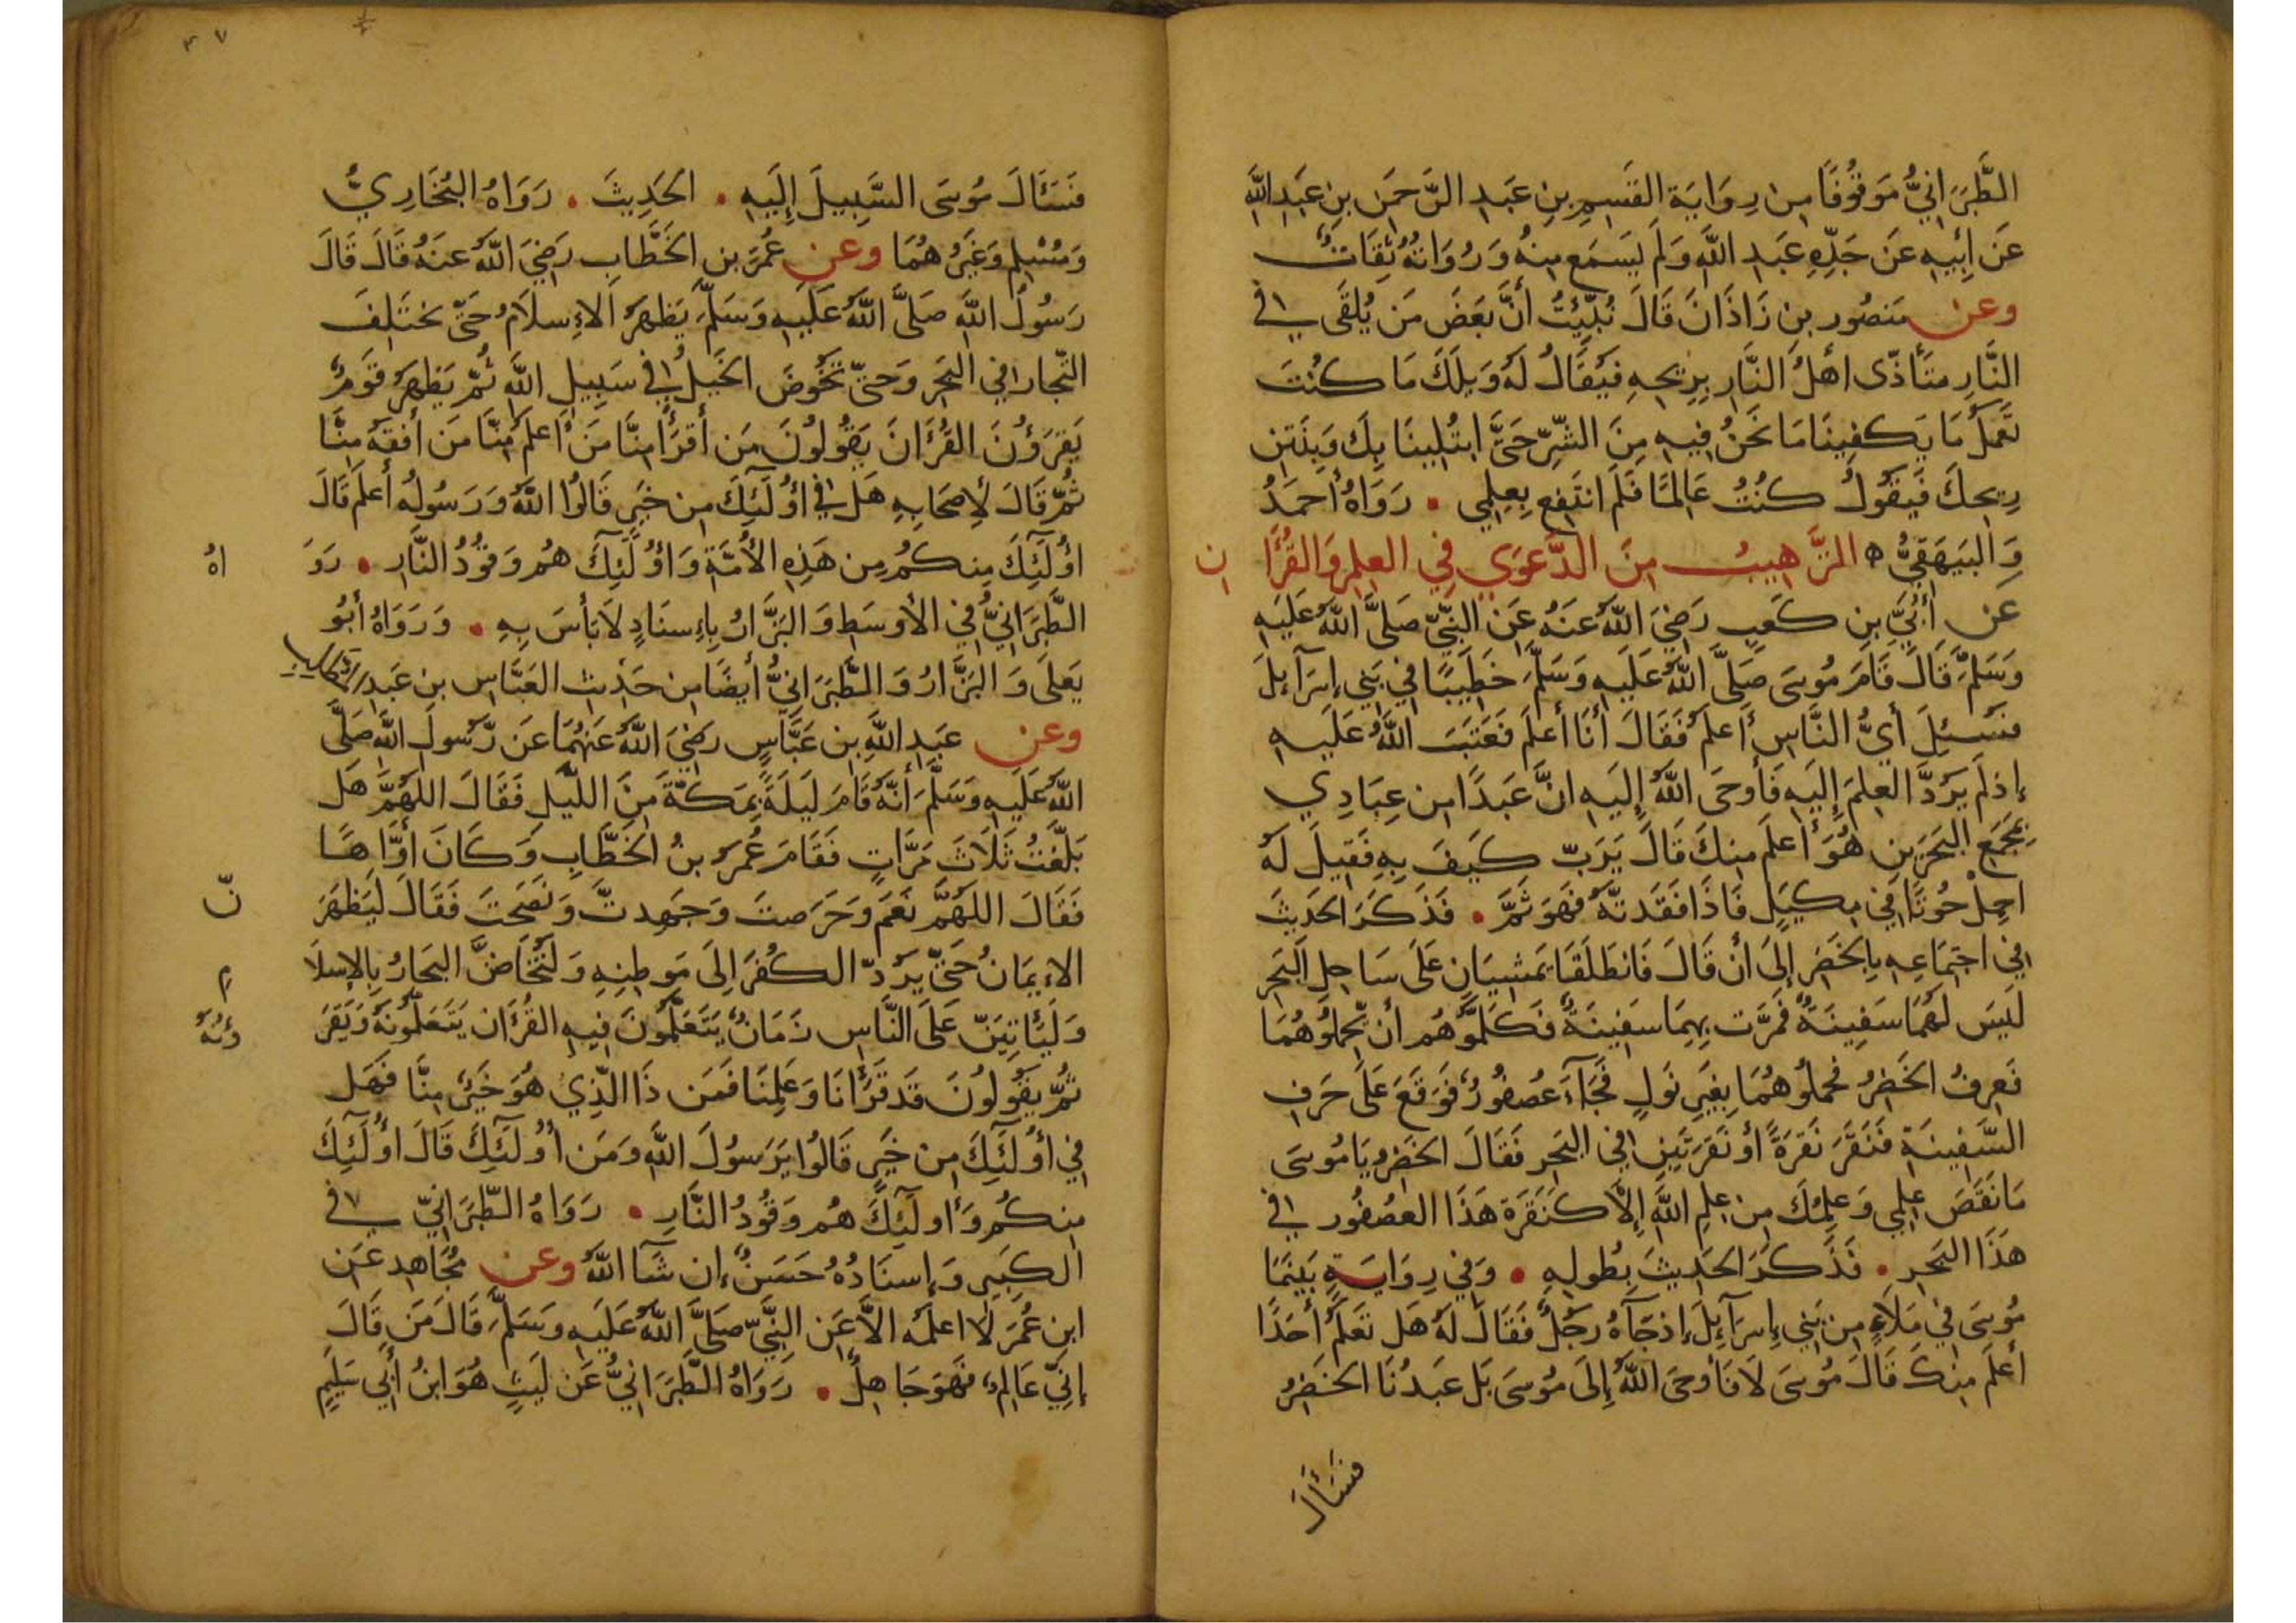 الطَّبَرَانِيُّ مَوقُوفًا مِن رِوَايَة القَسِمِ بنِ عَبدِ الرَّحمَن بنِ عَبدِ اللَّه
عَن أَبِيهِ عَن جَدِّهِ عَبدِ اللَّهِ وَلَم يَسمَع مِنهُ وَرُوَاتُهُ ثِقَات
وعن مَنصُور بنِ زَاذَانَ قَالَ نُبِّئتُ أَنَّ بَعضَ مَن يُلقَى فِي
النَّارِ يتَأَذّى أهلُ النَّارِ بِرِيحِهِ فَيُقَالُ لَهُ وَيلَكَ مَا كُنتَ
تَعمَلُ مَا يَكفِينَا مَا نَحنُ فِيهِ مِنَ الشَّرِّ حَتَّى ابتُلِينَا بِكَ وَبِنَتنِ
رِيحِكَ فَيَقُولُ كُنتُ عَالِمًا فَلَم انتَفِع بِعِلمِي . رَوَاهُ أحمَدُ
وَالبَيهَقِيُّ ه الترَّهِيبُ مِنَ الدَّعوَي فِي العِلمِ وَالقُرآن
عَن أُبَيِّ بنِ كَعبٍ رَضِيَ اللَّهُ عَنهُ عَنِ النَّبِيِّ صَلَّى اللَّهُ عَلَيهِ
وَسَلَّمَ قَالَ قَامَ مُوسَى صَلَّى اللَّهُ عَلَيهِ وَسَلَّمَ خَطِيبًا فِي بَنِي إسرَآءِيلَ
فَسُئِلَ أَيُّ النَّاسِ أَعلَمُ فَقَالَ أَنَا أَعلَم فَعَتَبَ اللَّهُ عَلَيهِ
إذ لَم يَرُدَّ العِلمَ إلَيهِ فَأَوحَى اللَّهُ إلَيهِ انَّ عَبدًا مِن عِبَادِي
بِمَجمَعِ البَحرَينِ هُوَ أَعلَم مِنكَ قَالَ يَرَبّ كَيفَ بِهِ فَقِيلَ لَهُ
احمِل حُوتًا فِي مِكيَلٍ فَاذَا فَقَدتَّهُ فَهوَ ثَمَّ . فَذَكَرَ الحَدِيثَ
فِي اجتِمَاعِهِ بِالخَضِر إلَى أَن قَالَ فَانطَلَقَا يَمشِيَانِ عَلَى سَاحِلِ البَحرِ
لَيسَ لَهُمَا سَفِينَةٌ فَمَرَّت بِهِمَا سَفِينَةٌ فَكَلَّمُوهُم أن يَّحمِلُوهُمَا
فَعرِفُ الخَضِرُ فَحملُوهُمَا بِغَيرِ نَولٍ فَجَآءَ عُصفُورٌ فَوَقَعَ عَلَى حَرفِ
السَّفِينَةِ فَنَقَرَ نَقرَةً أَو نَقرَتَينِ فِي البَحرِ فَقَالَ الخَضِرُ يَامُوسَى
مَا نَقَصَ عِلمِي وَعِلمُكَ مِن عِلمِ اللَّهِ إلَّا كَنَقرَةِ هَذَا العُصفُور فِي
هَذَا البَحرِ . فَذَكَرَ الحَدِيثَ بِطُولِهِ . وَفِي رِوَايَةٍ بَينَمَا
مُوسَى فِي مَلَاءٍ مِن بَنِي إسرَآءِيلَ إذ جَآءَهُ رَجُلٌ فَقَالَ لَهُ هَل تَعلَمُ أَحَدًا
أعلَمَ مِنكَ قَالَ مُوسَى لَا فَأَوحَى اللَّهُ إلَى مُوسَى بَل عَبدُنَا الخَضِرُ
فَسَأَلَ
٣٧
فَسَئَالَ مُوسَى السَّبِيلَ إلَيهِ . الحَدِيثَ . رَوَاهُ البُخَارِيُّ
وَمُسْلِم وَغَيرُهُمَا وعن عُمَرَ بن الخَطَّابِ رَضِيَ اللَّهُ عَنهُ قَالَ قَالَ
رَسُولُ اللَّهِ صَلَّى اللَّهُ عَلَيهِ وَسَلَّمَ يَظهَرُ الاءِسلَامُ حَتَّى تختَلِفَ
التّجار فِي البَحرِ وَحَتَّى تَخُوضَ الخَيلُ فِي سَبِيلِ اللَّهِ ثُمَّ يَظهَرُ قَومٌ
يَقرَؤُنَ القُرءَانَ يَقُولُونَ مَن أَقرَأُ مِنَّا مَن أَعلَمُ مِنَّا مَن أَفقَهُ مِنَّا
ثُمَّ قَالَ لِأصحَابِهِ هَل فِي أُولَئِكَ مِن خَيرٍ قَالُوا اللَّهُ وَرَسُولُه أَعلَم قَالَ
اُولَئِكَ مِنكُم مِن هَذِهِ الأُمَّةِ وَأُولَئِكَ هُم وَقُودُ النَّارِ . رَوَاهُ
الطَّبَرَانِيُّ فِي الأَوسَطِ وَالبَزَّارُ بِإِسنَادٍ لَا بَأسَ بِهِ . وَرَوَاهُ أَبُو
يَعلَى وَالبَزَّارُ وَالطَّبَرَانِيُّ أَيضًا مِن حَدِيثِ العَبَّاسِ بنِ عَبدِ المُطَّلِب
وعن عَبدِ اللَّهِ بنِ عَبَّاسٍ رَضِيَ اللَّهُ عَنهُمَا عَن رَّسُولِ اللَّهِ صَلَّى
اللَّهُ عَلَيهِ وَسَلَّمَ أَنَّهُ قَامَ لَيلَةً بِمَكَّةَ مِنَ اللَّيلِ فَقَالَ اللَهُمَّ هَل
بَلَّغتُ ثَلَاثَ مَرَّاتٍ فَقَامَ عُمَرُ بنُ الخَطَّابِ وَكَانَ أَوَّاهًا
فَقَالَ اللَهُمَّ نَعَم وَحَرَصتَ وَجَهِدتَّ وَنَصَحتَ فَقَالَ لَيَظهَرَنّ
الاءِيمَانُ حَتَّى يَرُدّ الكُفرَ إلَى مَوطِنِهِ وَلَتُخَاضَنَّ البِحَارُ بِالاِسلَام
وَلَيَأتِيَنّ عَلَى النَّاسِ زَمَانٌ يَتَعَلَّمُونَ فِيهِ القُرءَان يَتَعَلَّمُونَهُ وَيَقرَءُونَهُ
ثُمَّ يَقُولُونَ قَد قَرَأنَا وَعَلِمنَا فَمَن ذَا الَّذِي هُوَ خَيرٌ مِنَّا فَهَل
فِي أُولَئِكَ مِن خَيرٍ قَالُوا يَرَسُولَ اللَّهِ وَمَن أُولَئِكَ قَالَ اُولَئِكَ
مِنكُم وَأُولَئِكَ هُم وَقُودُ النَّارِ . رَوَاهُ الطَّبَرَانِيّ فِي
الكَبِيرِ وَإِسنَادُهُ حَسَنٌ إن شَآءَ اللَّهُ وعن مُجَاهِد عَن
ابنِ عُمَرَ لَا اعلَمُه الَّا عَن النَّبِيّ صَلَّى اللَّهُ عَلَيهِ وَسَلَّمَ قَالَ مَن قَالَ
إنِّي عَالِمٌ فَهوَ جَاهِلٌ . رَوَاهُ الطَّبَرَانِيُّ عَن لَيثٍ هُوَ ابنُ أَبِي سَلِيمٍ